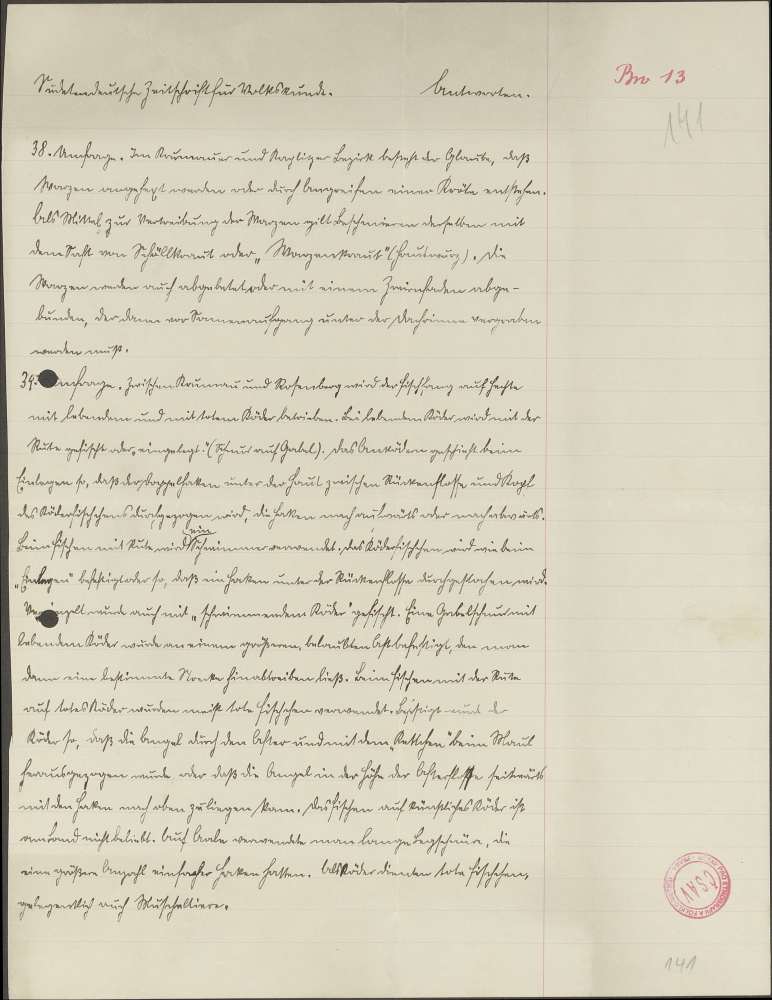 Sudetendeutsche Zeitschrift für Volkskunde. Antworten.
Br 13
141
38. Umfrage. Im Krummauer und Kaplitzer Bezirk besteht der Glaube, daß
Warzen angehext werden oder durch Angreifen einer Kröte entstehen.
Als Mittel zur Vertreibung der Warzen gilt Beschmieren derselben mit
dem Saft von Schöllkraut oder „Warzenkraut" (Hauswurz). Die
Warzen werden auch abgebetet oder mit einem Zwirnfaden abge-
bunden, der dann vor Sonnenaufgang unter der Dachrinne vergraben
werden muß.
39. Umfrage. Zwischen Krummau und Rosenberg wird der Fischfang auf Hechte
mit lebendem und mit totem Köder betrieben. Bei lebendem Köder wird mit der
Rute gefischt oder „eingelegt" (Schnur auf Gabel). Das Anködern geschieht beim
Einlegen so, daß der Doppelhaken unter der Haut zwischen Rückenflosse und Kopf
des Köderfischchens durchgezogen wird, die Haken nach aufwärts oder nach abwärts.
Beim Fischen mit Rute wird ein Schwimmer verwendet. Das Köderfischchen wird wie beim
„Einlegen" befestigt oder so, daß ein Haken unter der Rückenflosse durchgestochen wird.
Vereinzelt wurde auch mit „schwimmendem Köder" gefischt. Eine Gabelschnur mit
lebendem Köder wurde an einem größeren, belaubten Ast befestigt, den man
dann eine bestimmte Strecke hinabtreiben ließ. Beim Fischen mit der Rute
auf totes Köder wurden meist tote Fischchen verwendet. Befestigt wurde der
Köder so, daß die Angel durch den After und mit dem „Kettchen" beim Maul
herausgezogen wurde oder daß die Angel in der Höhe der Afterflosse seitwärts
mit den Haken nach oben zu liegen kam. Das Fischen auf künstliches Köder ist
am Land nicht beliebt. Auf Aale verwendete man lange Legschnüre, die
eine größere Anzahl einfacher Haken hatten. Als Köder dienten tote Fischchen,
gelegentlich auch Muscheltiere.
ČSAV
141